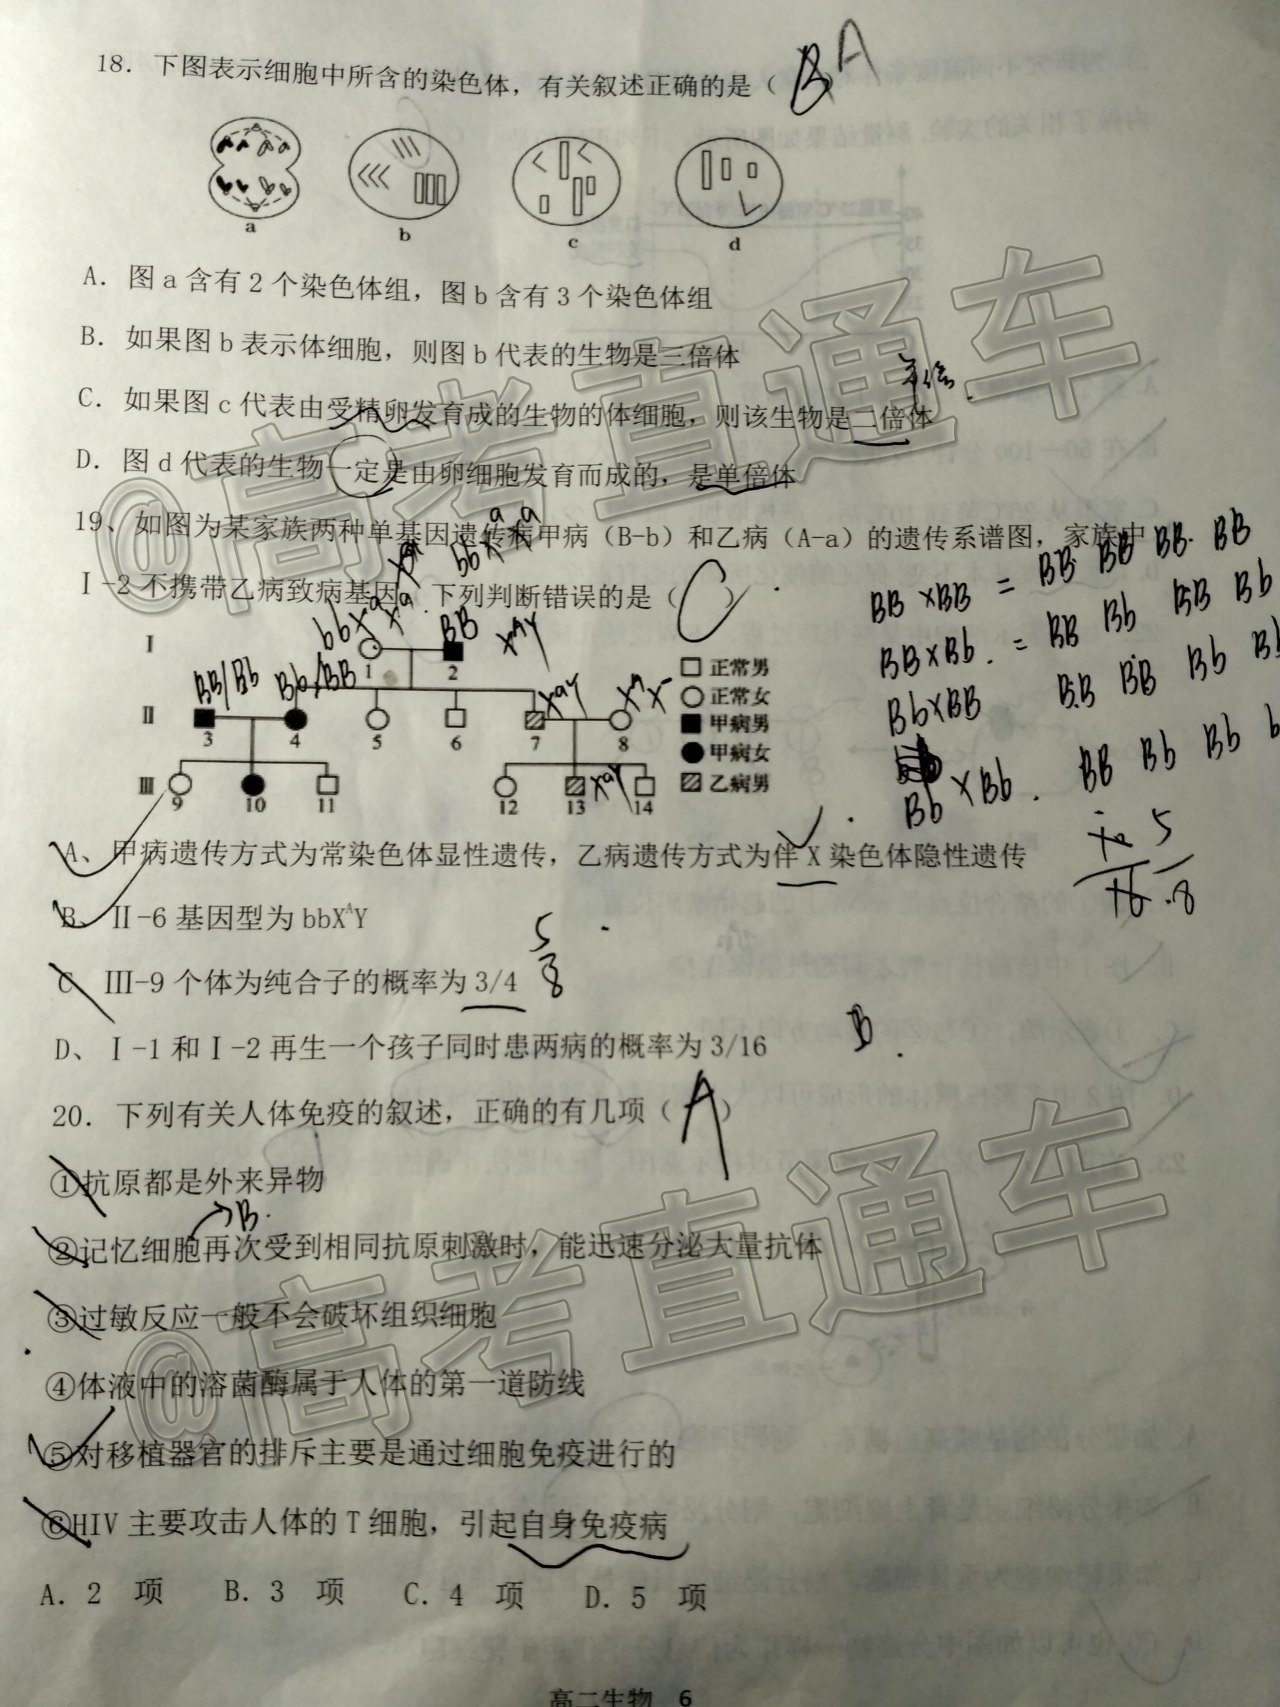 18. 下图表示细胞中所含的染色体，有关叙述正确的是（ B A
a b c d
A. 图a含有2个染色体组，图b含有3个染色体组
B. 如果图b表示体细胞，则图b代表的生物是三倍体
单倍
C. 如果图c代表由受精卵发育成的生物的体细胞，则该生物是二倍体
D. 图d代表的生物一定是由卵细胞发育而成的，是单倍体
19、如图为某家族两种单基因遗传病甲病（B-b）和乙病（A-a）的遗传系谱图，家族中
Ⅰ-2不携带乙病致病基因，下列判断错误的是（ C ）
BB×BB = BB BB BB BB
BB×Bb. = BB Bb BB Bb
Bb×BB BB BB Bb Bb
Bb×Bb. BB Bb Bb
bbXᵃXᵃ BB XᴬY
Ⅰ 1 2
BB/Bb Bb/BB XᵃY
Ⅱ 3 4 5 6 7 8
Ⅲ 9 10 11 12 13 XᵃY 14
□正常男
○正常女
■甲病男
●甲病女
▨乙病男
A、甲病遗传方式为常染色体显性遗传，乙病遗传方式为伴X染色体隐性遗传
B、Ⅱ-6基因型为bbXᴬY
C、Ⅲ-9个体为纯合子的概率为3/4 5/8
D、Ⅰ-1和Ⅰ-2再生一个孩子同时患两病的概率为3/16 B.
20. 下列有关人体免疫的叙述，正确的有几项（ A ）
①抗原都是外来异物
B.
②记忆细胞再次受到相同抗原刺激时，能迅速分泌大量抗体
③过敏反应一般不会破坏组织细胞
④体液中的溶菌酶属于人体的第一道防线
⑤对移植器官的排斥主要是通过细胞免疫进行的
⑥HIV主要攻击人体的T细胞，引起自身免疫病
A. 2 项 B. 3 项 C. 4 项 D. 5 项
高二生物 6
@高考直通车
@高考直通车